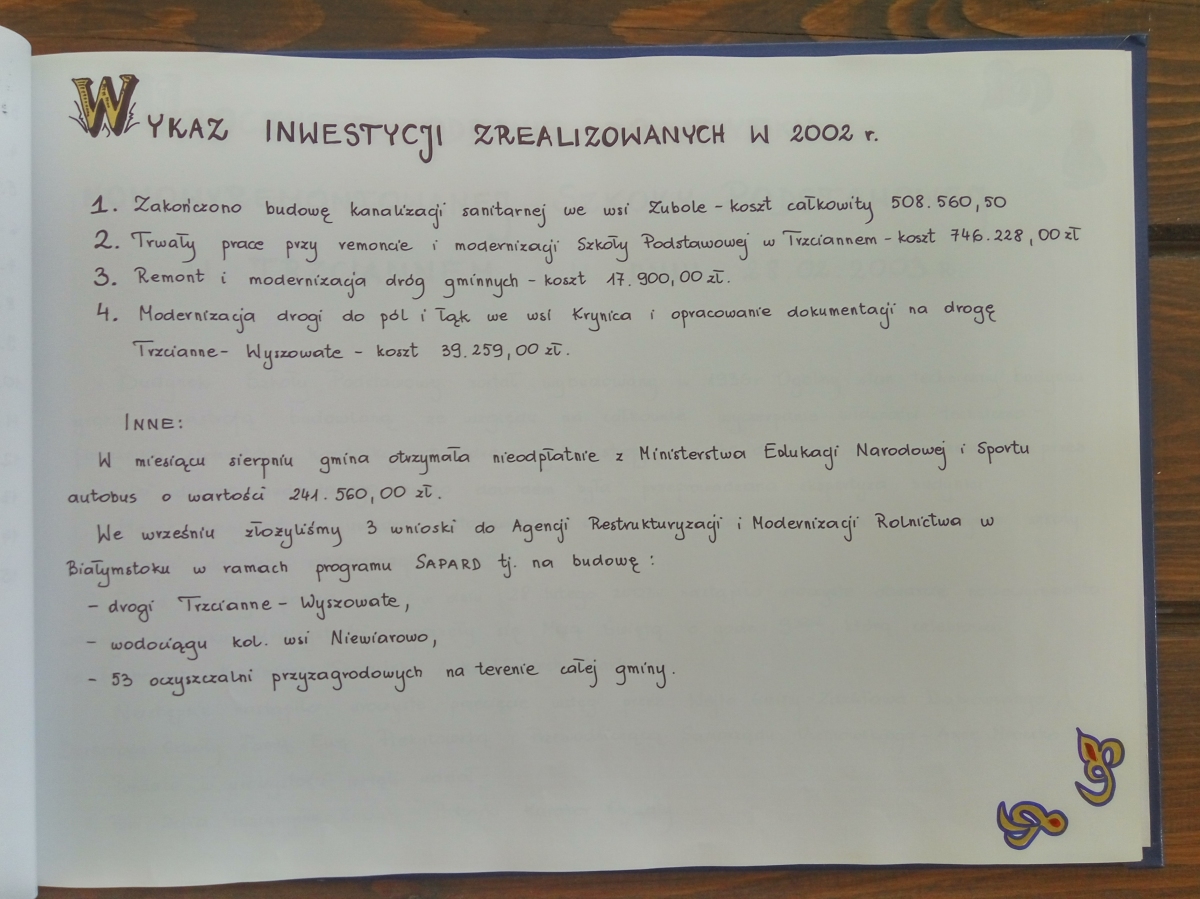 WYKAZ INWESTYCJI ZREALIZOWANYCH W 2002 r.
1. Zakończono budowę kanalizacji sanitarnej we wsi Zubole - koszt całkowity 508.560,50
2. Trwały prace przy remoncie i modernizacji Szkoły Podstawowej w Trzciannem - koszt 746.228,00 zł
3. Remont i modernizacja dróg gminnych - koszt 17.900,00 zł.
4. Modernizacja drogi do pól i łąk we wsi Krynica i opracowanie dokumentacji na drogę
Trzcianne - Wyszowate - koszt 39.259,00 zł.
INNE:
W miesiącu sierpniu gmina otrzymała nieodpłatnie z Ministerstwa Edukacji Narodowej i Sportu
autobus o wartości 241.560,00 zł.
We wrześniu złożyliśmy 3 wnioski do Agencji Restrukturyzacji i Modernizacji Rolnictwa w
Białymstoku w ramach programu SAPARD tj. na budowę:
- drogi Trzcianne - Wyszowate,
- wodociągu kol. wsi Niewiarowo,
- 53 oczyszczalni przyzagrodowych na terenie całej gminy.